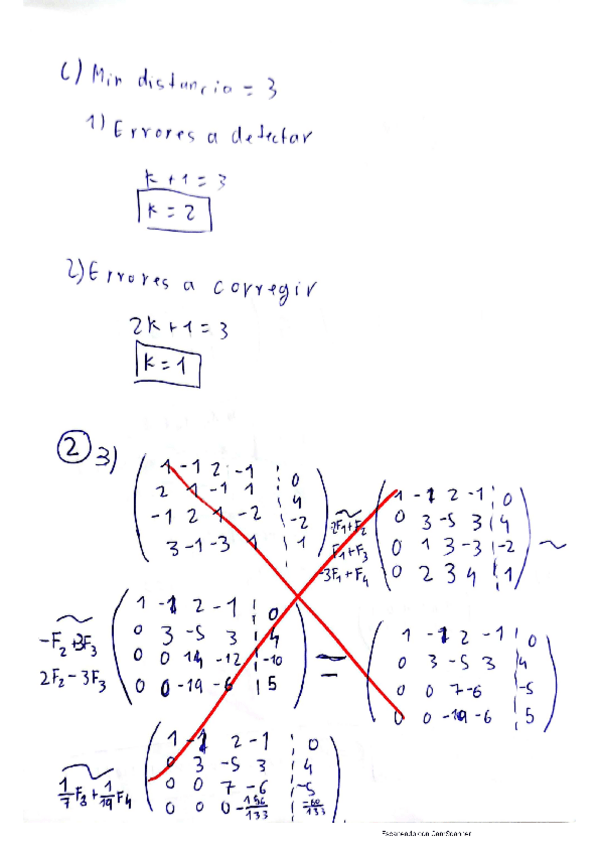 c) Min distancia = 3
1) Errores a detectar
k + 1 = 3
k = 2
2) Errores a corregir
2k + 1 = 3
k = 1
② 3)
1 -1 2 -1 | 0
2 1 -1 1 | 4
-1 2 1 -2 | -2
3 -1 -3 1 | 1
~
2F₁+F₂
F₁+F₃
-3F₁+F₄
1 -1 2 -1 | 0
0 3 -5 3 | 4
0 1 3 -3 | -2
0 2 3 4 | 1
~
~
-F₂+3F₃
2F₂-3F₃
1 -1 2 -1 | 0
0 3 -5 3 | 4
0 0 14 -12 | -10
0 0 -19 -6 | 5
=
1 -1 2 -1 | 0
0 3 -5 3 | 4
0 0 7 -6 | -5
0 0 -19 -6 | 5
~
1/7 F₃ + 1/19 F₄
1 -1 2 -1 | 0
0 3 -5 3 | 4
0 0 7 -6 | -5
0 0 0 -156/133 | -60/133
Escaneado con CamScanner